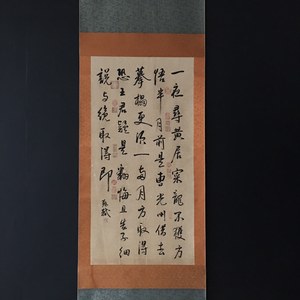 一夜尋黃居寀龍不獲方
悟半月前是曹光州借去
摹搨更須一兩月方取得
恐王君疑是翻悔且告子細
說與纔取得即
蘇軾